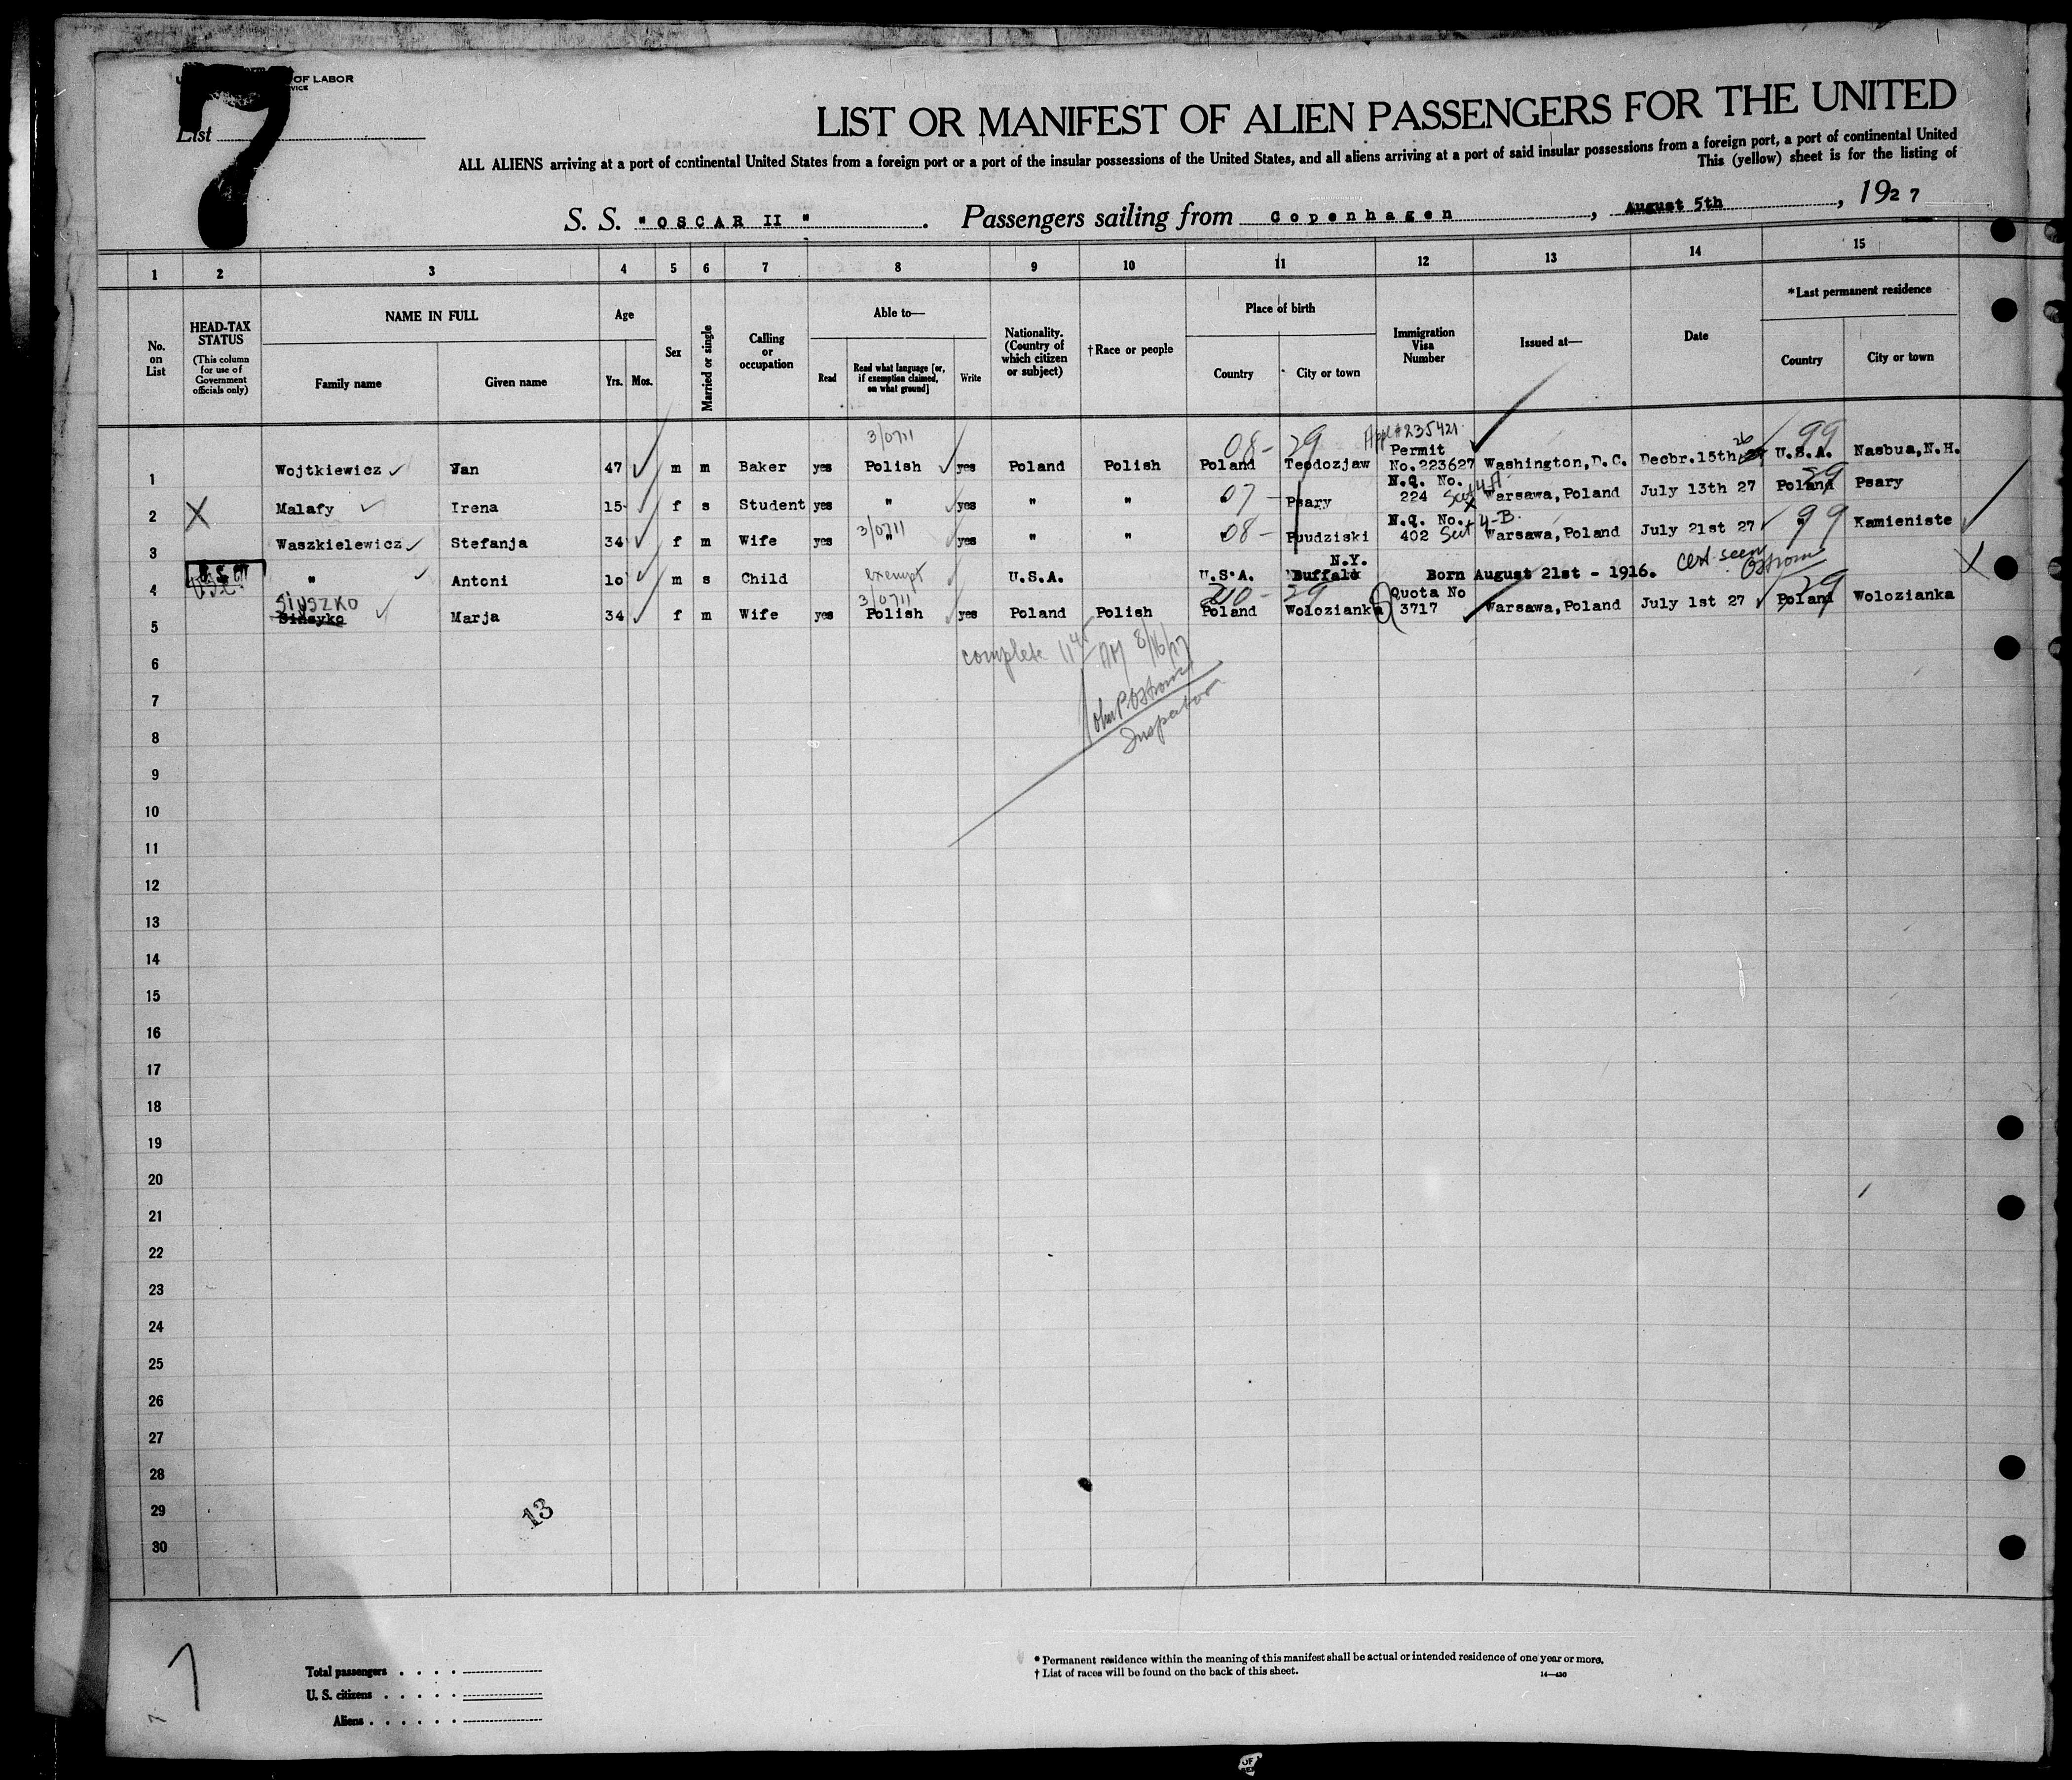 7
OF LABOR
List
LIST OR MANIFEST OF ALIEN PASSENGERS FOR THE UNITED
ALL ALIENS arriving at a port of continental United States from a foreign port or a port of the insular possessions of the United States, and all aliens arriving at a port of said insular possessions from a foreign port, a port of continental United
This (yellow) sheet is for the listing of
S. S. "OSCAR II". Passengers sailing from Copenhagen, August 5th, 1927
1 2 3 4 5 6 7 8 9 10 11 12 13 14 15
No. on List
HEAD-TAX STATUS (This column for use of Government officials only)
NAME IN FULL
Family name Given name
Age
Yrs. Mos.
Sex
Married or single
Calling or occupation
Able to—
Read Read what language [or, if exemption claimed, on what ground] Write
Nationality. (Country of which citizen or subject)
†Race or people
Place of birth
Country City or town
Immigration Visa Number
Issued at—
Date
*Last permanent residence
Country City or town
3/0711 08- 29 Appl#235421 26 99
1 Wojtkiewicz Jan 47 m m Baker yes Polish yes Poland Polish Poland Teodozjaw Permit No.223627 Washington,D.C. Decbr.15th U.S.A. Nashua,N.H.
07 29
2 X Malafy Irena 15 f s Student yes " yes " " Psary N.Q. No. 224 Warsawa,Poland July 13th 27 Poland Psary
3/0711 08- Sect 4-B. 99
3 Waszkielewicz Stefanja 34 f m Wife yes " yes " " Puudziski N.Q. No. 402 Warsawa,Poland July 21st 27 " Kamieniste
4 " Antoni 10 m s Child exempt U.S.A. U.S.A. N.Y. Buffalo Born August 21st - 1916. Cert seen Ostrom X
SIUSZKO 3/0711 29 29
5 Marja 34 f m Wife yes Polish yes Poland Polish Poland Wolozianka Quota No 3717 Warsawa,Poland July 1st 27 Poland Wolozianka
complete 11 45 AM 8/16/27
John P Ostrom
Inspector
6
7
8
9
10
11
12
13
14
15
16
17
18
19
20
21
22
23
24
25
26
27
28
29
30
13
7
Total passengers
U. S. citizens
Aliens
* Permanent residence within the meaning of this manifest shall be actual or intended residence of one year or more.
† List of races will be found on the back of this sheet.
14—430